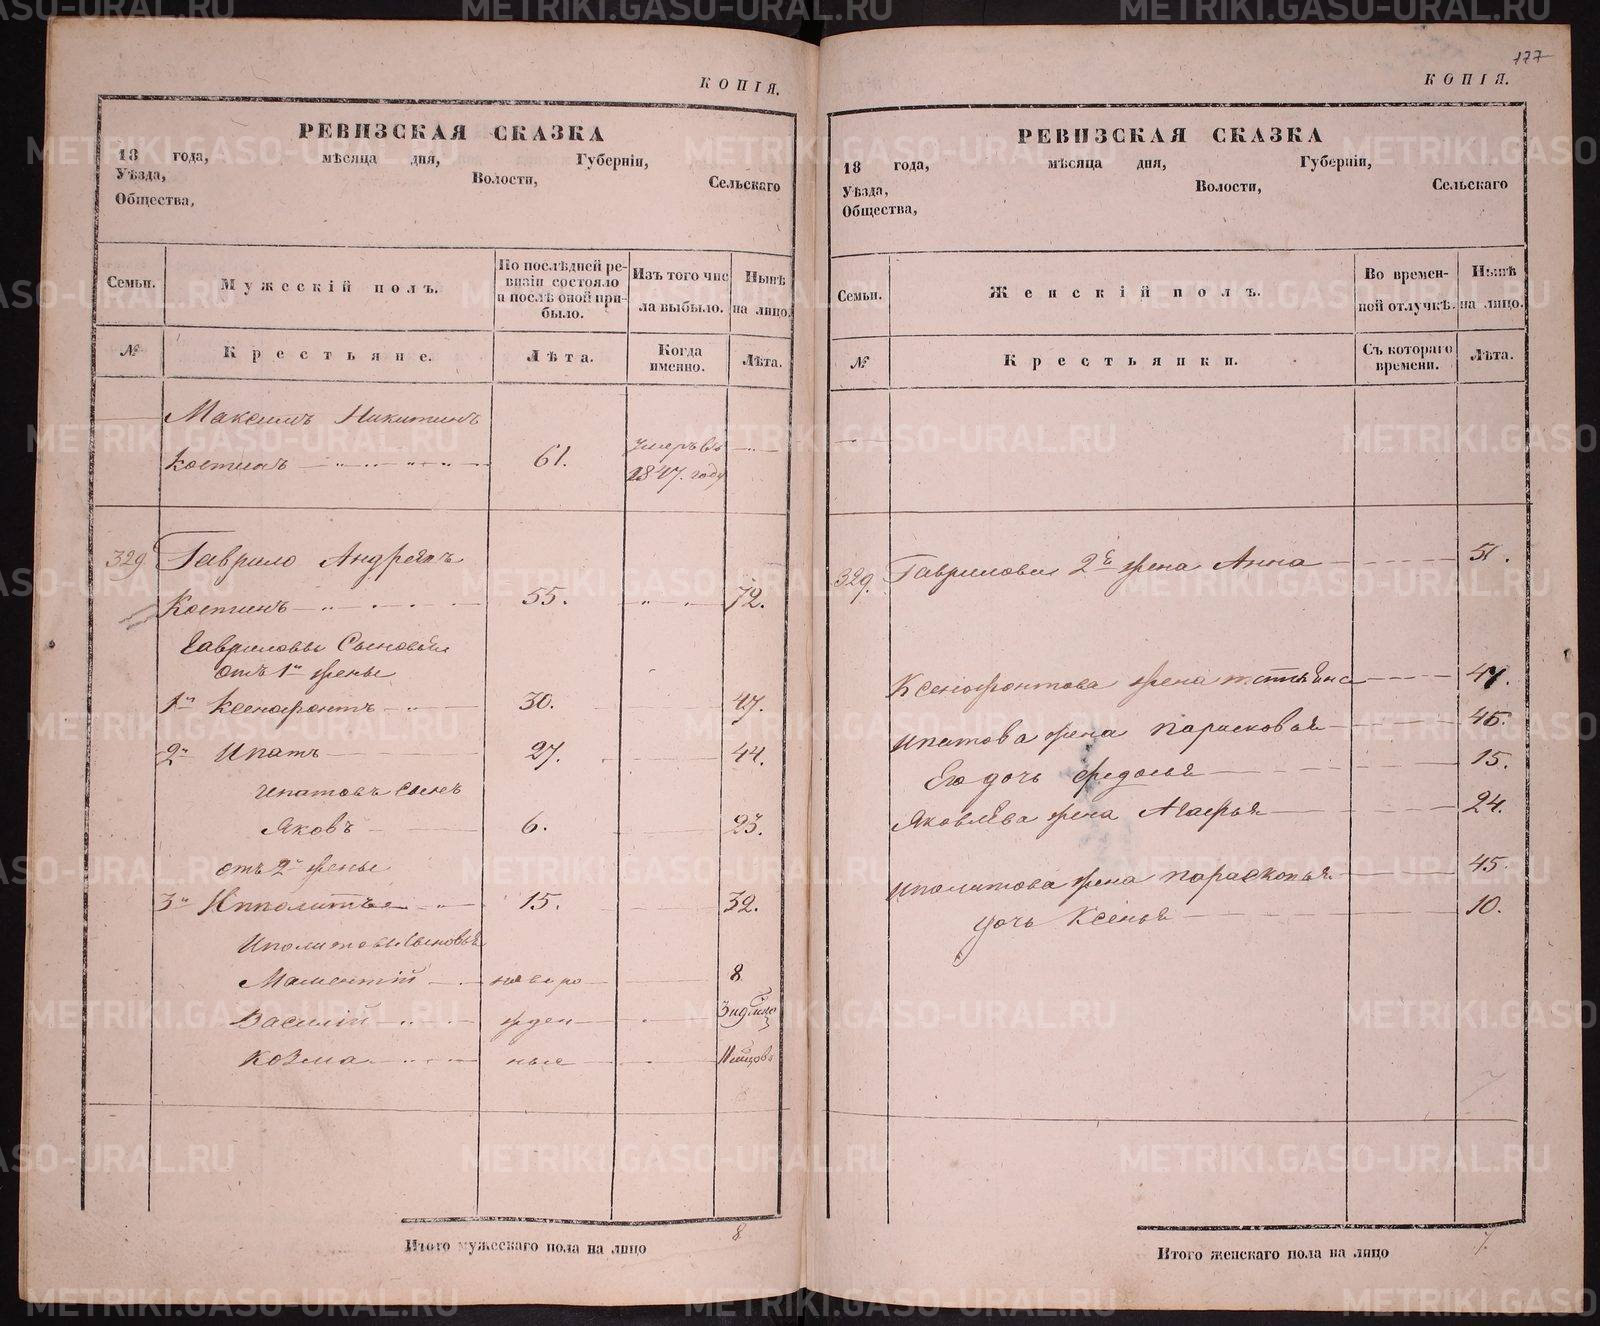 КОПІЯ.
РЕВИЗСКАЯ СКАЗКА
18 года, мѣсяца дня, Губерніи,
Уѣзда, Волости, Сельскаго
Общества,
Семьи. Мужескій полъ. По послѣдней ревизіи состояло и послѣ оной прибыло. Изъ того числа выбыло. Нынѣ на лицо.
№ Крестьяне. Лѣта. Когда именно. Лѣта.
Максимъ Никитинъ
Костинъ 61. Умеръ въ 1847. году
329 Гаврило Андреевъ
Костинъ 55. 72.
Гавриловы Сыновья
отъ 1й жены
1й Ксенофонтъ 30. 47.
2й Ипатъ 27. 44.
Ипатовъ сынъ
Яковъ 6. 23.
отъ 2й жены
3й Ипполитъ 15. 32.
Иполитовы сыновья
Маментій новоро 8
Василій жден 3
Козма ные
Итого мужескаго пола на лицо 8
177
КОПІЯ.
РЕВИЗСКАЯ СКАЗКА
18 года, мѣсяца дня, Губерніи,
Уѣзда, Волости, Сельскаго
Общества,
Семьи. Женскій полъ. Во временной отлучкѣ. Нынѣ на лицо.
№ Крестьянки. Съ котораго времени. Лѣта.
329. Гаврилова 2я жена Анна 51.
Ксенофонтова жена 47.
Ипатова жена Парасковья 45.
Его дочь Федосья 15.
Яковлева жена Агафья 24.
Иполитова жена Парасковья 45.
дочь Ксенья 10.
7
Итого женскаго пола на лицо 7
METRIKI.GASO-URAL.RU